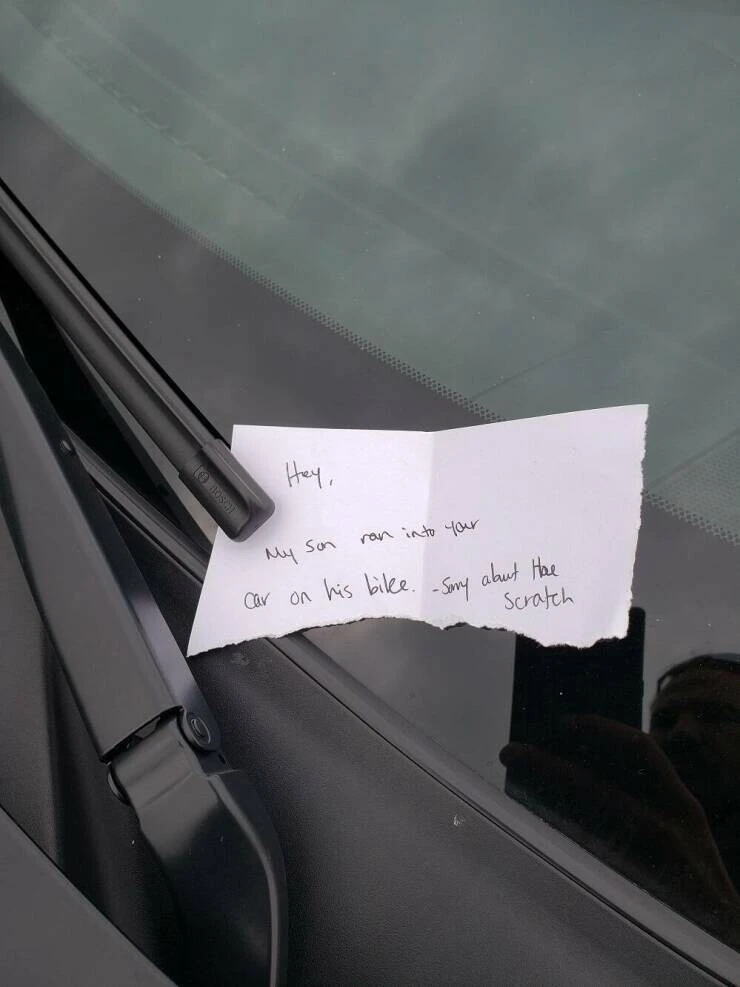 Hey,
My son ran into your
car on his bike. -Sorry about the
scratch
BOSCH